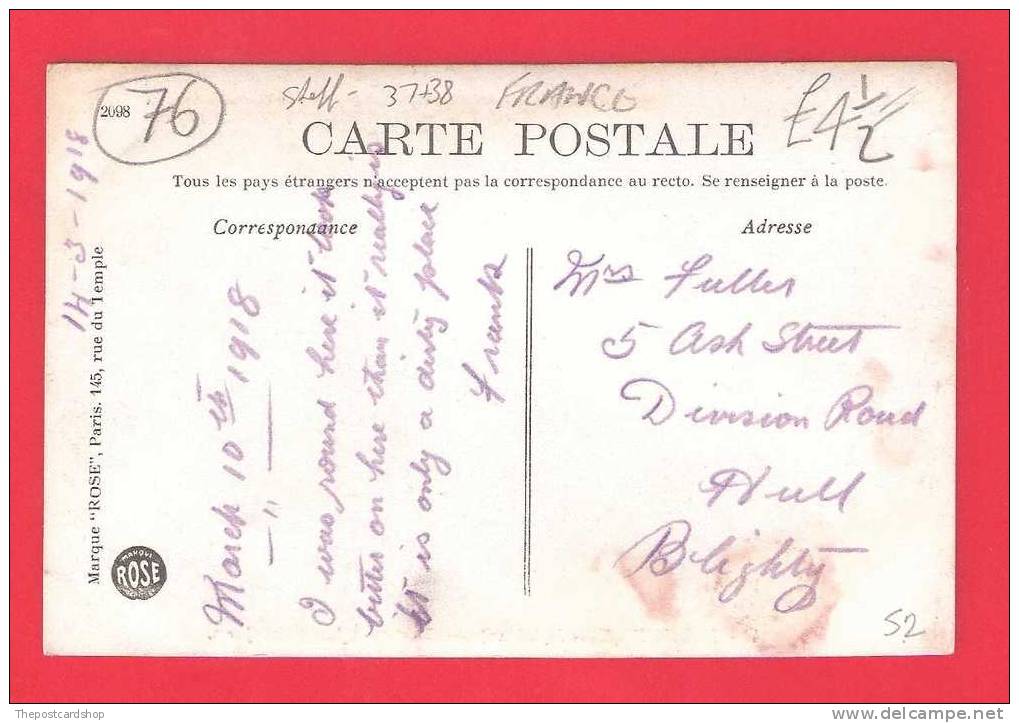 2098
76
37+38 FRANCE
£4 1/2
CARTE POSTALE
Tous les pays étrangers n'acceptent pas la correspondance au recto. Se renseigner à la poste.
Correspondance
Adresse
14-3-1918
Marque "ROSE", Paris. 145, rue du Temple
MARQUE
ROSE
March 10th 1918
I was round here it looks
better on here than it really is
it is only a dirty place
Frank
Mrs Fuller
5 Ash Street
Division Road
Hull
Blighty
52
Thepostcardshop
www.delcampe.net